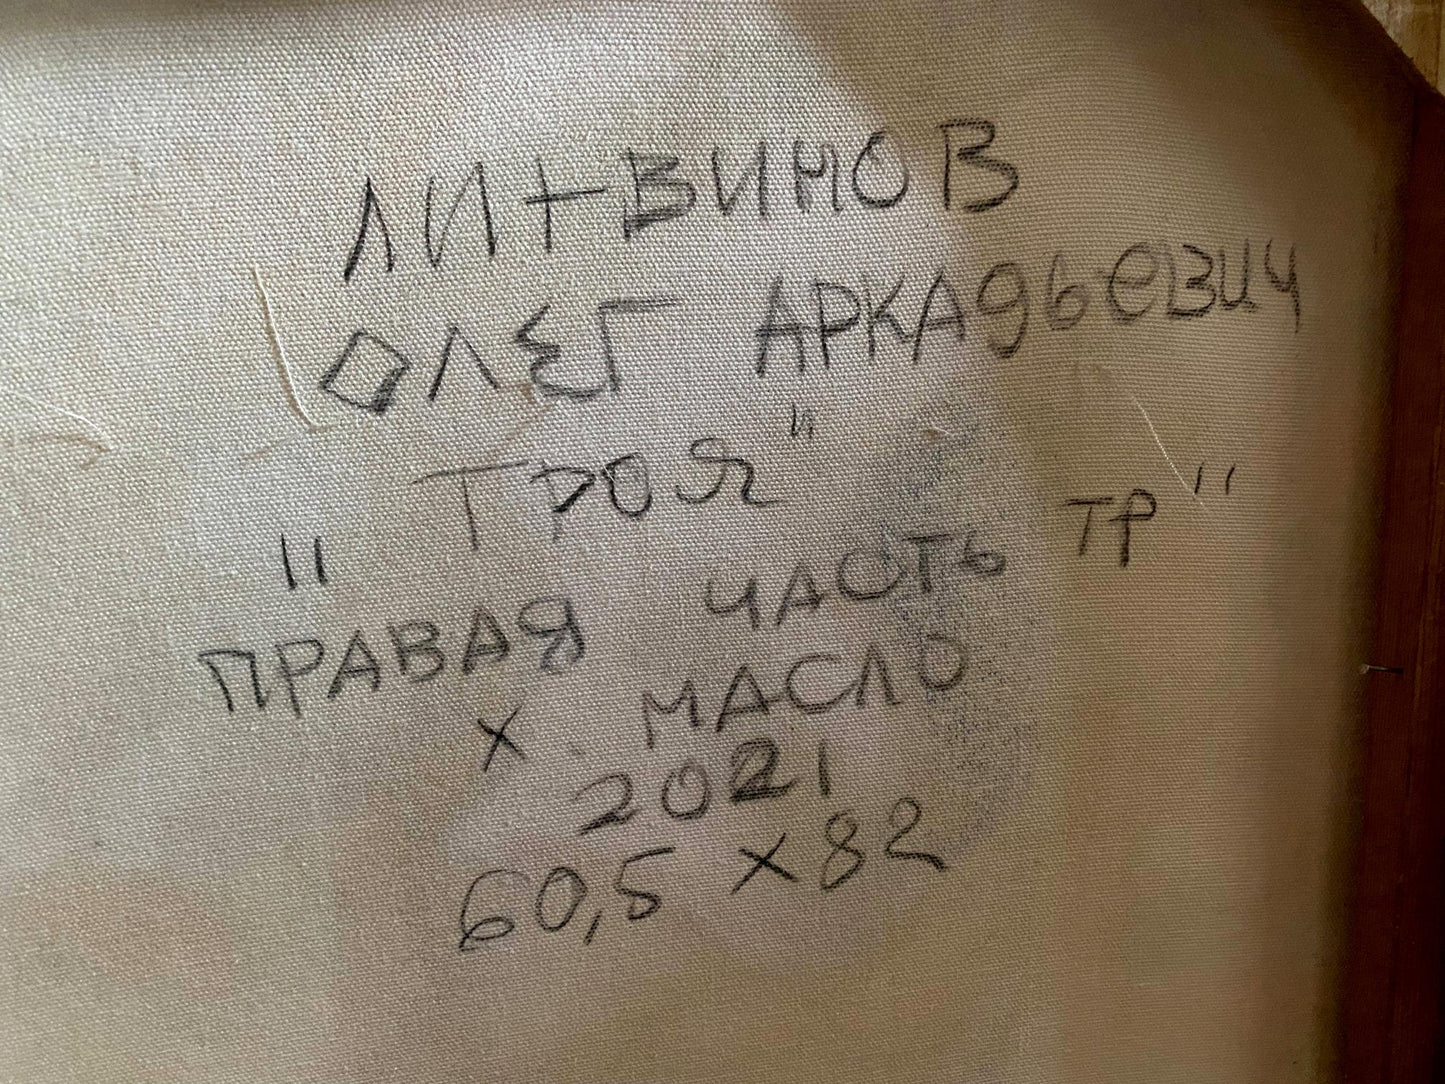 ЛИТВИНОВ
ОЛЕГ АРКАДЬЕВИЧ
"ТРОЯ"
ПРАВАЯ ЧАСТЬ ТР"
Х. МАСЛО
2021
60,5 х 82